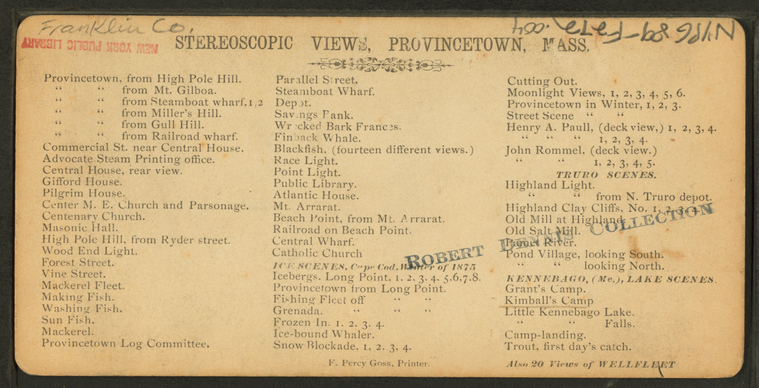 Franklin Co.
NYPG 89-F272 .004
NEW YORK PUBLIC LIBRARY
STEREOSCOPIC VIEWS, PROVINCETOWN, MASS.
Provincetown, from High Pole Hill.
" " from Mt. Gilboa.
" " from Steamboat wharf. 1, 2
" " from Miller's Hill.
" " from Gull Hill.
" " from Railroad wharf.
Commercial St. near Central House.
Advocate Steam Printing office.
Central House, rear view.
Gifford House.
Pilgrim House.
Center M. E. Church and Parsonage.
Centenary Church.
Masonic Hall.
High Pole Hill, from Ryder street.
Wood End Light.
Forest Street.
Vine Street.
Mackerel Fleet.
Making Fish.
Washing Fish.
Sun Fish.
Mackerel.
Provincetown Log Committee.
Parallel Street.
Steamboat Wharf.
Depot.
Savings Bank.
Wrecked Bark Frances.
Finback Whale.
Blackfish, (fourteen different views.)
Race Light.
Point Light.
Public Library.
Atlantic House.
Mt. Arrarat.
Beach Point, from Mt. Arrarat.
Railroad on Beach Point.
Central Wharf.
Catholic Church
ICE SCENES, Cape Cod, Winter of 1875
Icebergs, Long Point, 1, 2, 3, 4, 5, 6, 7, 8.
Provincetown from Long Point.
Fishing Fleet off " "
Grenada. " "
Frozen In. 1, 2, 3, 4.
Ice-bound Whaler.
Snow Blockade, 1, 2, 3, 4.
F. Percy Goss, Printer.
Cutting Out.
Moonlight Views, 1, 2, 3, 4, 5, 6.
Provincetown in Winter, 1, 2, 3.
Street Scene " "
Henry A. Paull, (deck view,) 1, 2, 3, 4.
" " " 1, 2, 3, 4.
John Rommel, (deck view.)
" " 1, 2, 3, 4, 5.
TRURO SCENES.
Highland Light.
" " from N. Truro depot.
Highland Clay Cliffs, No. 1, 2, 3
Old Mill at Highland.
Old Salt Mill.
Pamet River.
Pond Village, looking South.
" " looking North.
KENNEBAGO, (Me.), LAKE SCENES
Grant's Camp.
Kimball's Camp
Little Kennebago Lake.
" " Falls.
Camp-landing.
Trout, first day's catch.
Also 20 Views of WELLFLEET
ROBERT DENNIS COLLECTION